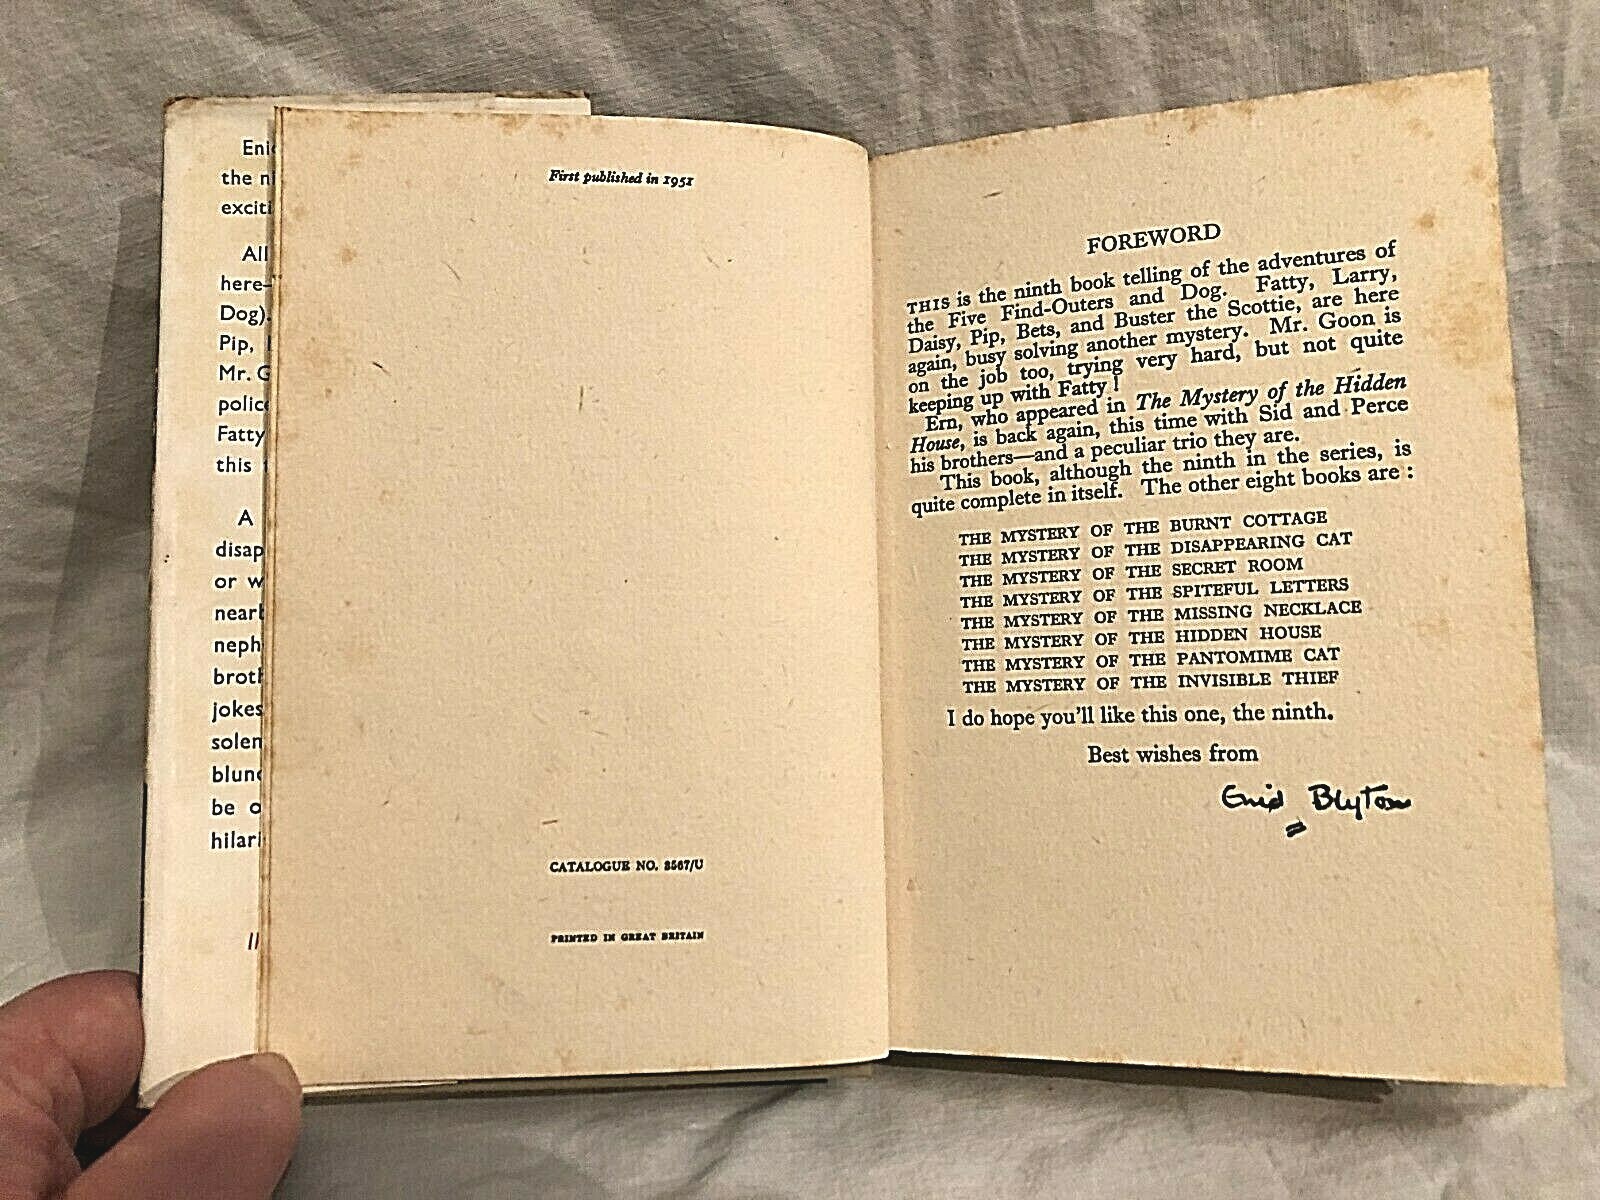 the
All
here
Dog).
Pip,
Mr.
Fatty
this
A
or
jokes
be
First published in 1951
CATALOGUE NO. 8567/U
PRINTED IN GREAT BRITAIN
FOREWORD
THIS is the ninth book telling of the adventures of
the Five Find-Outers and Dog. Fatty, Larry,
Daisy, Pip, Bets, and Buster the Scottie, are here
again, busy solving another mystery. Mr. Goon is
on the job too, trying very hard, but not quite
keeping up with Fatty!
Ern, who appeared in The Mystery of the Hidden
House, is back again, this time with Sid and Perce
his brothers—and a peculiar trio they are.
This book, although the ninth in the series, is
quite complete in itself. The other eight books are :
THE MYSTERY OF THE BURNT COTTAGE
THE MYSTERY OF THE DISAPPEARING CAT
THE MYSTERY OF THE SECRET ROOM
THE MYSTERY OF THE SPITEFUL LETTERS
THE MYSTERY OF THE MISSING NECKLACE
THE MYSTERY OF THE HIDDEN HOUSE
THE MYSTERY OF THE PANTOMIME CAT
THE MYSTERY OF THE INVISIBLE THIEF
I do hope you'll like this one, the ninth.
Best wishes from
Enid Blyton